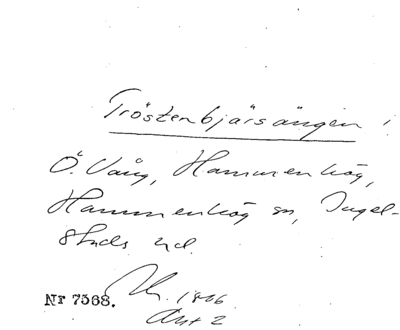 Tröstenbjärsängen
Ö. Vång, Hammenhög,
Hammenhög sn, Ingel-
stads hd.
Nr 7368. 1806
Akt 2